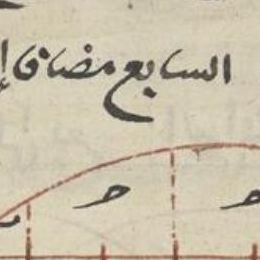 السابع مضاف إ
ح ح